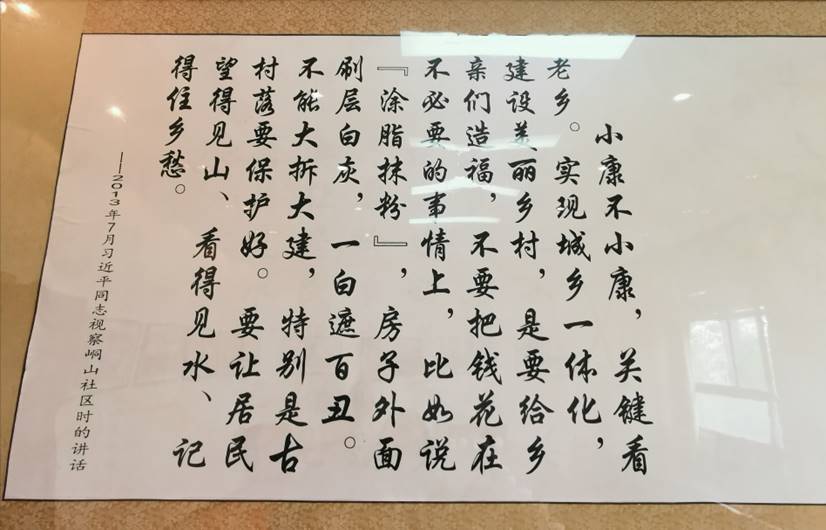 小康不小康，关键看
老乡。实现城乡一体化，
建设美丽乡村，是要给乡
亲们造福，不要把钱花在
不必要的事情上，比如说
『涂脂抹粉』，房子外面
刷层白灰，一白遮百丑。
不能大拆大建，特别是古
村落要保护好。要让居民
望得见山、看得见水、记
得住乡愁。
——2013年7月习近平同志视察峒山社区时的讲话